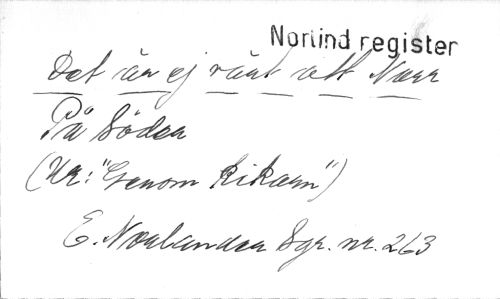 Norlind register
Det är ej värt att Narr
På Söder
(Ur: "Genom Kikarn")
E. Norlander Sgr. nr. 263